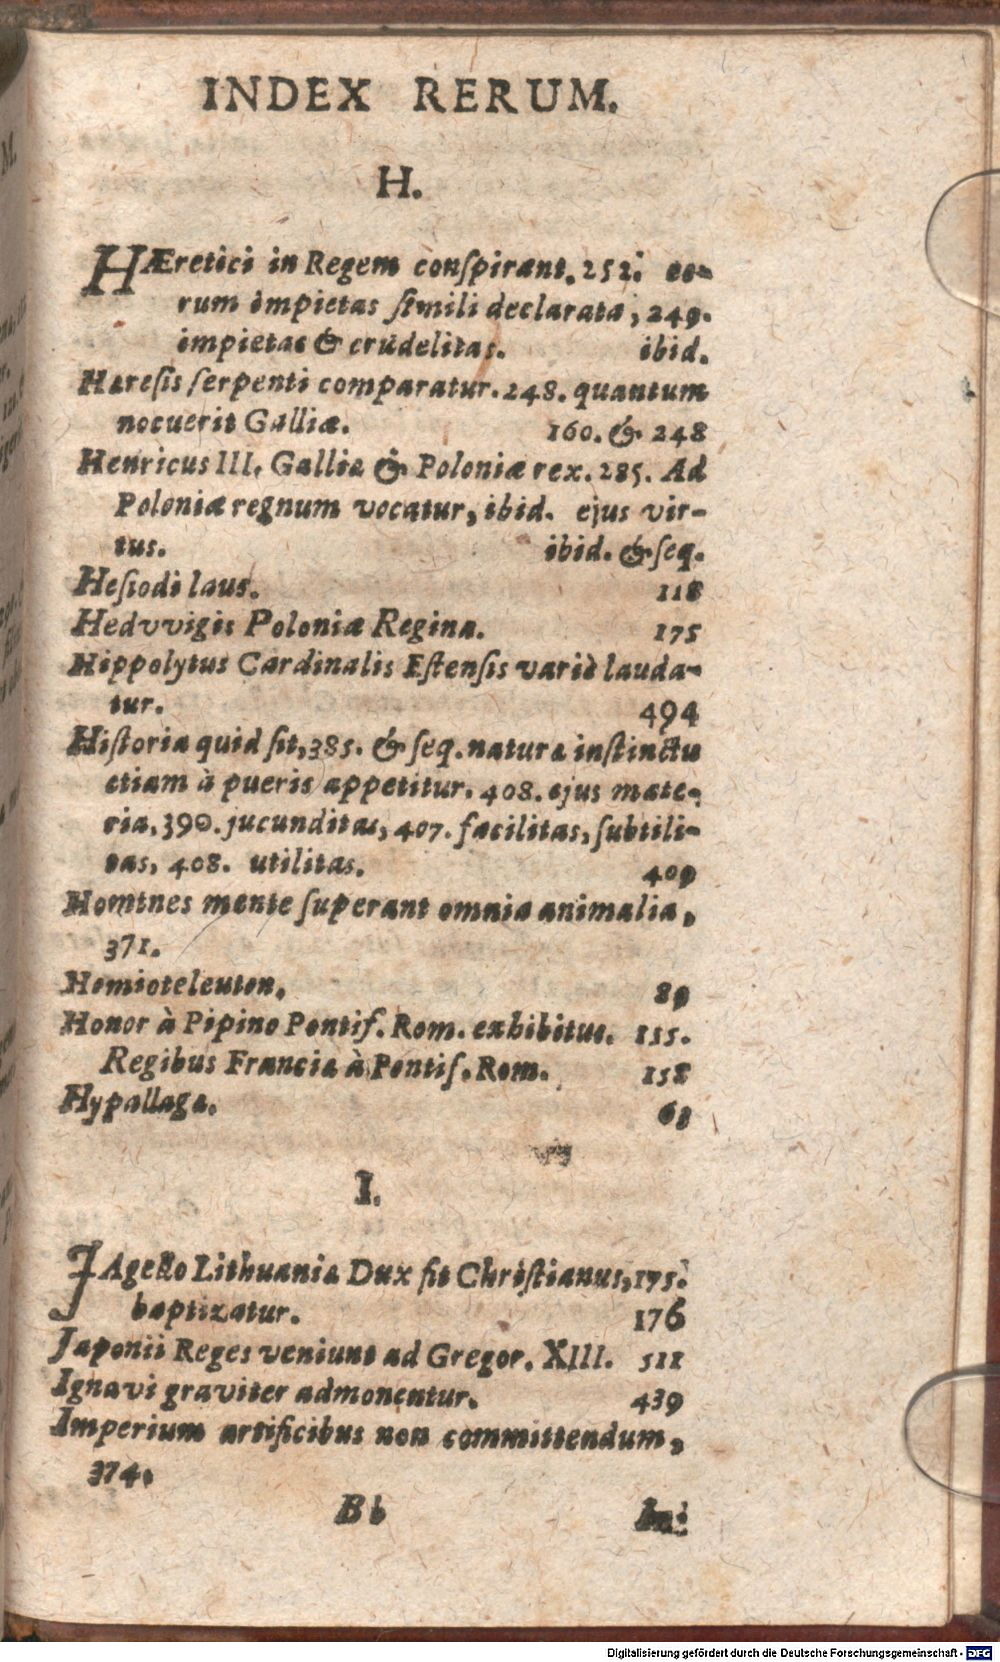 INDEX RERUM.
H.
HÆretici in Regem conſpirant. 252. eo-
rum impietas ſimili declarata, 249.
impietas & crudelitas. ibid.
Hæreſis ſerpenti comparatur. 248. quantum
nocuerit Galliæ. 160. & 248
Henricus III. Galliæ & Poloniæ rex. 285. Ad
Poloniæ regnum vocatur, ibid. ejus vir-
tus. ibid. & ſeq.
Heſiodi laus. 118
Hedvvigis Poloniæ Regina. 175
Hippolytus Cardinalis Eſtenſis variè lauda-
tur. 494
Hiſtoria quid ſit, 385. & ſeq. naturæ inſtinctu
etiam à pueris appetitur. 408. ejus mate-
ria. 390. jucunditas, 407. facilitas, ſubtili-
tas, 408. utilitas. 409
Homines mente ſuperant omnia animalia,
371.
Homioteleuton. 89
Honor à Pipino Pontif. Rom. exhibitus. 155.
Regibus Franciæ à Pontif. Rom. 158
Hypallage. 68
I.
JAgello Lithuaniæ Dux fit Chriſtianus, 175.
baptizatur. 176
Japonii Reges veniunt ad Gregor. XIII. 511
Ignavi graviter admonentur. 439
Imperium artificibus non committendum,
374.
Bb
Digitalisierung gefördert durch die Deutsche Forschungsgemeinschaft - DFG